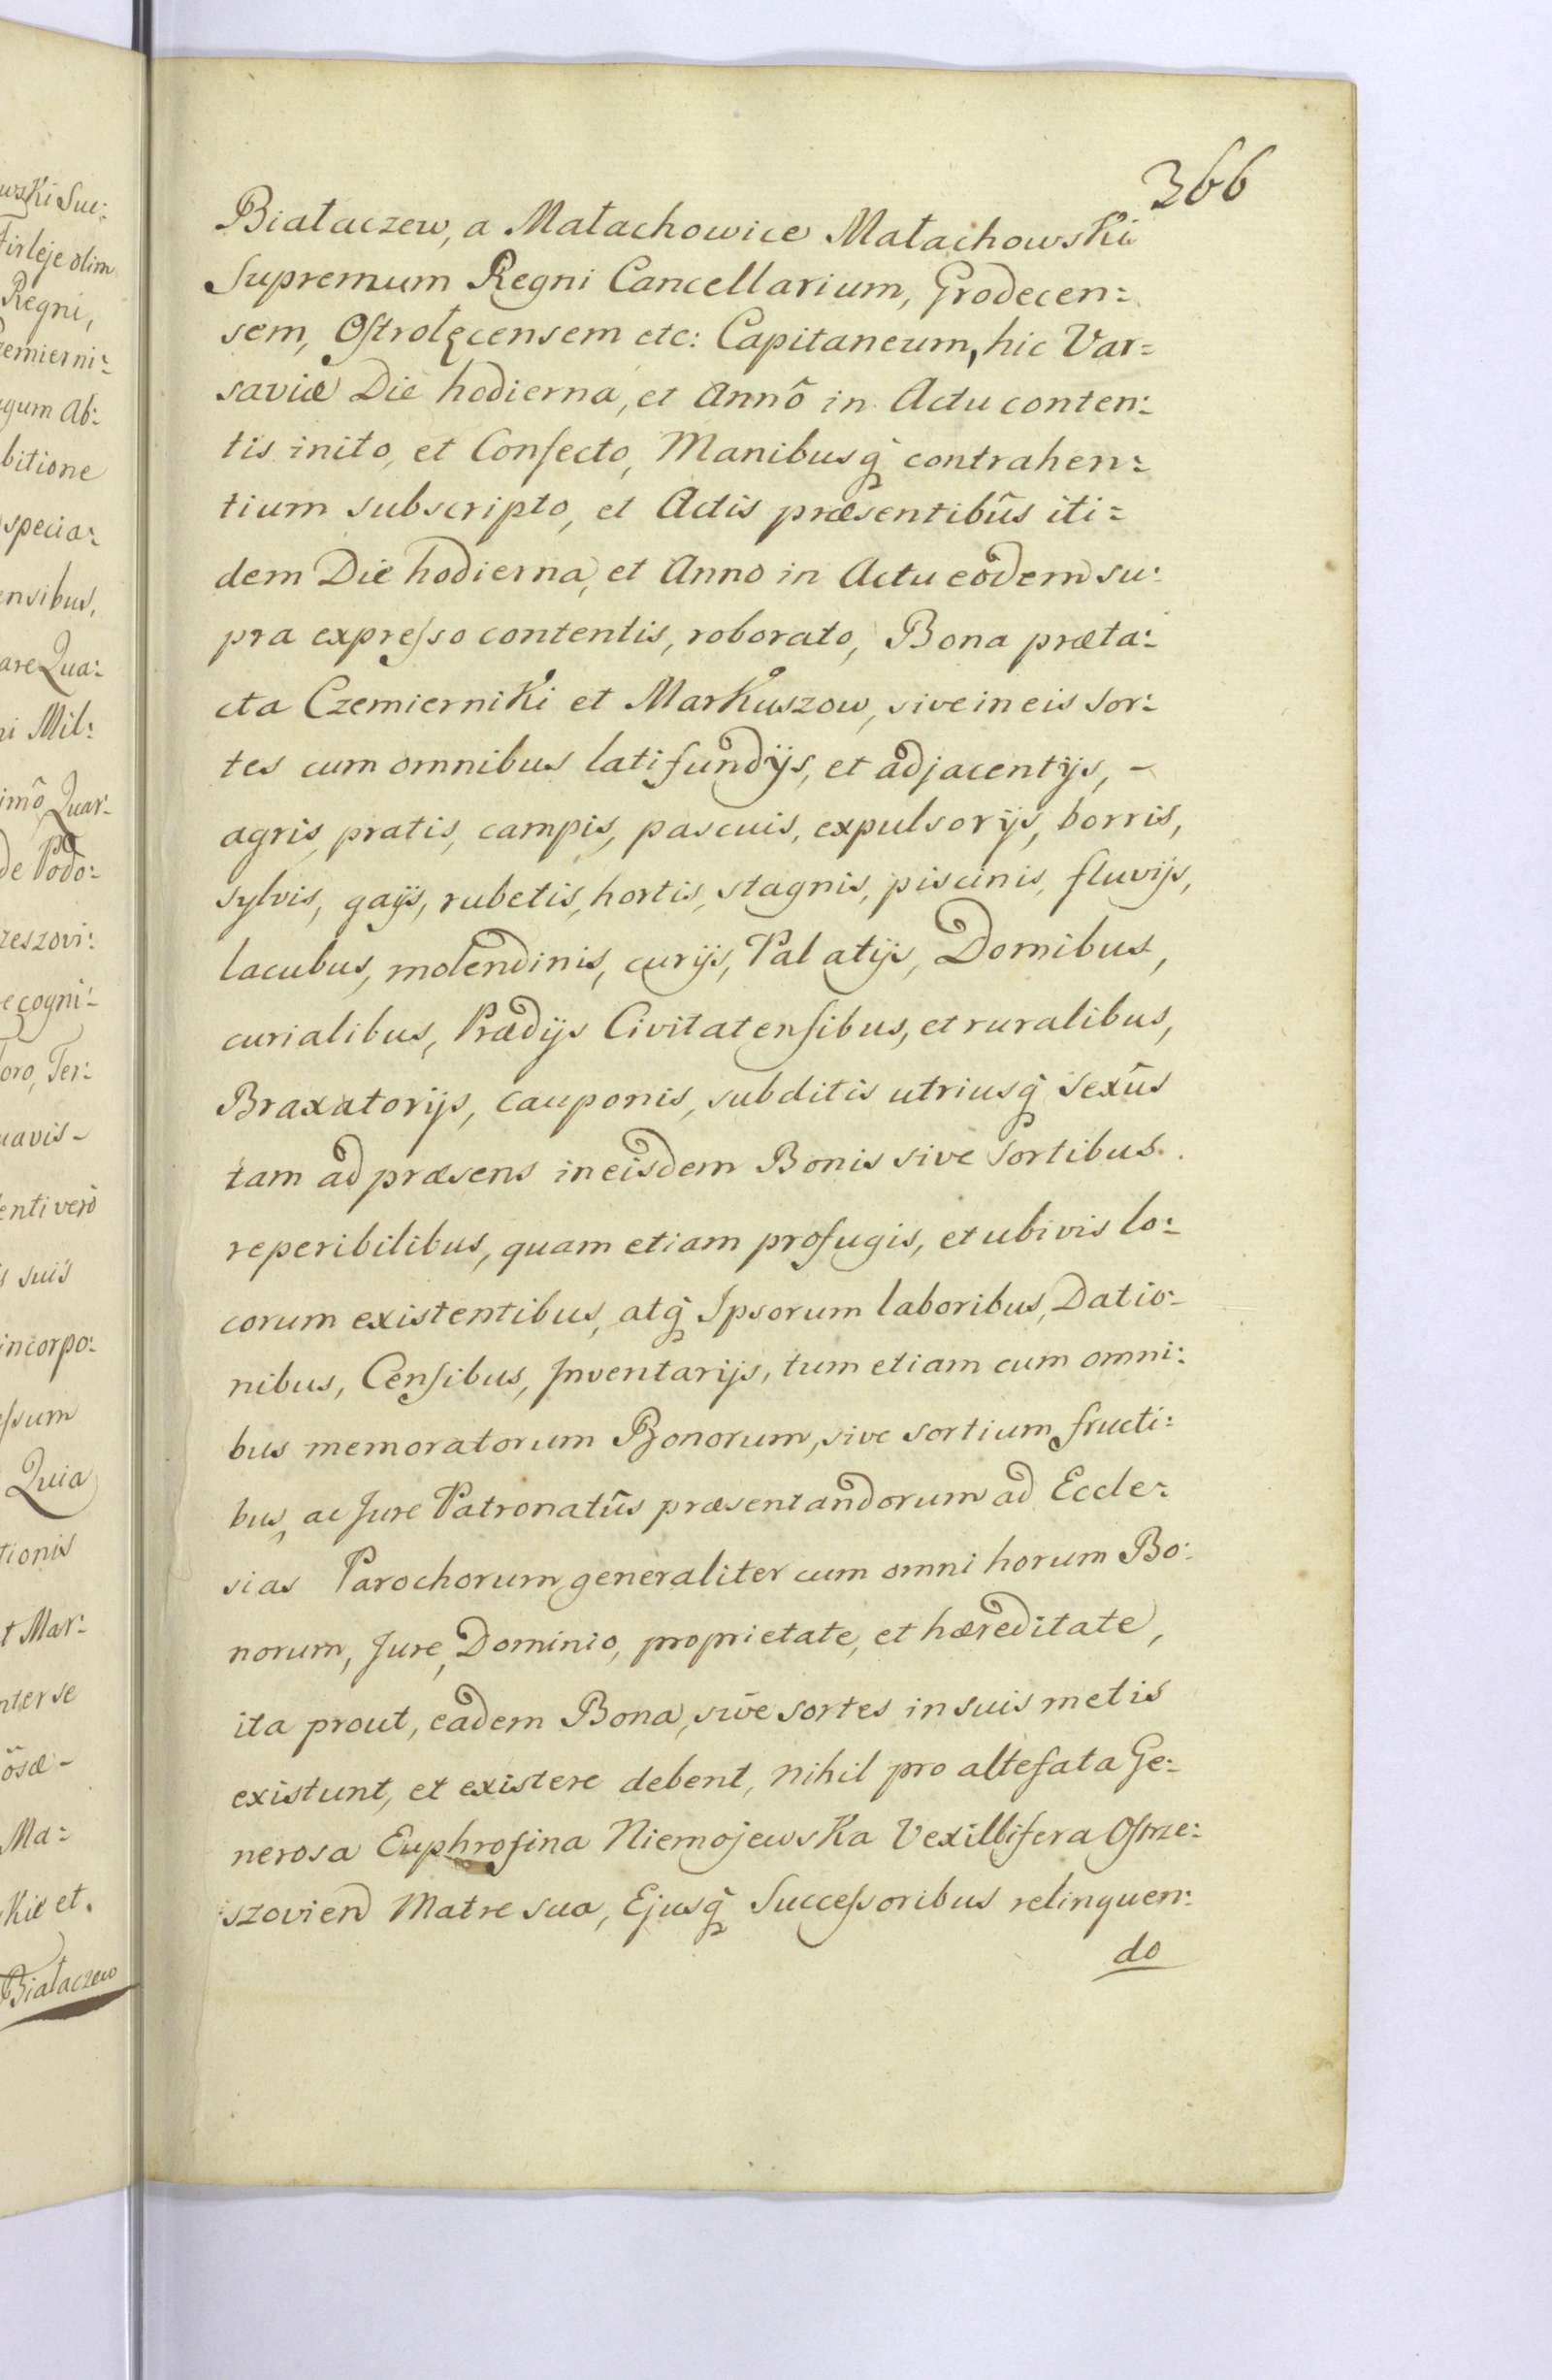 wski Suc:
Firleje olim
Regni,
zemierni:
gum Ab:
bitione
specia:
ensibus,
are Qua:
ni Mil:
imô Quar:
de Podo:
zeszovi:
ecogni:
oro, Ter:
uavis -
enti verò
s suis
incorpo:
ſsum
Quia
tionis
t Mar:
nter se
ôsæ -
Ma:
Kie et.
Białaczew
366
Białaczew, a Małachowice Małachowski
Supremum Regni Cancellarium, Grodecen:
sem, Oſtrołęcensem etc: Capitaneum, hic Var:
saviæ Die hodierna, et Annô in Actu conten:
tis inito, et Confecto, Manibusq̃ contrahen:
tium subscripto, et Actis præsentibûs iti:
dem Die hodierna, et Anno in Actu eodem su:
pra expreſso contentis, roborato, Bona præta:
cta Czemierniki et Markuszow, sive in eis sor:
tes cum omnibus latifundijs, et adjacentijs, -
agris, pratis, campis, pascuis, expulsorijs, borris,
sylvis, gajis, rubetis, hortis, stagnis, piscinis, fluvijs,
lacubus, molendinis, curijs, Palatijs, Domibus,
curialibus, Prædijs Civitatenſibus, et ruralibus,
Braxatorijs, cauponis, subditis utriusq̃ sexûs
tam ad præsens in eisdem Bonis sive sortibus.
reperibilibus, quam etiam profugis, et ubivis lo:
corum existentibus, atq̃ Ipsorum laboribus, Datio:
nibus, Cenſibus, Inventarijs, tum etiam cum omni:
bus memoratorum Bonorum, sive sortium fructi:
bus, ac Jure Patronatûs præsentandorum ad Eccle:
sias Parochorum generaliter cum omni horum Bo:
norum, Jure, Dominio, proprietate, et hæreditate,
ita prout, eadem Bona, sive sortes in suis metis
existunt, et existere debent, nihil pro altefata Ge:
nerosa Euphroſina Niemojewska Vexillifera Oſtrze:
szovien Matre sua, Ejusq̃ Succeſsoribus relinquen:
do